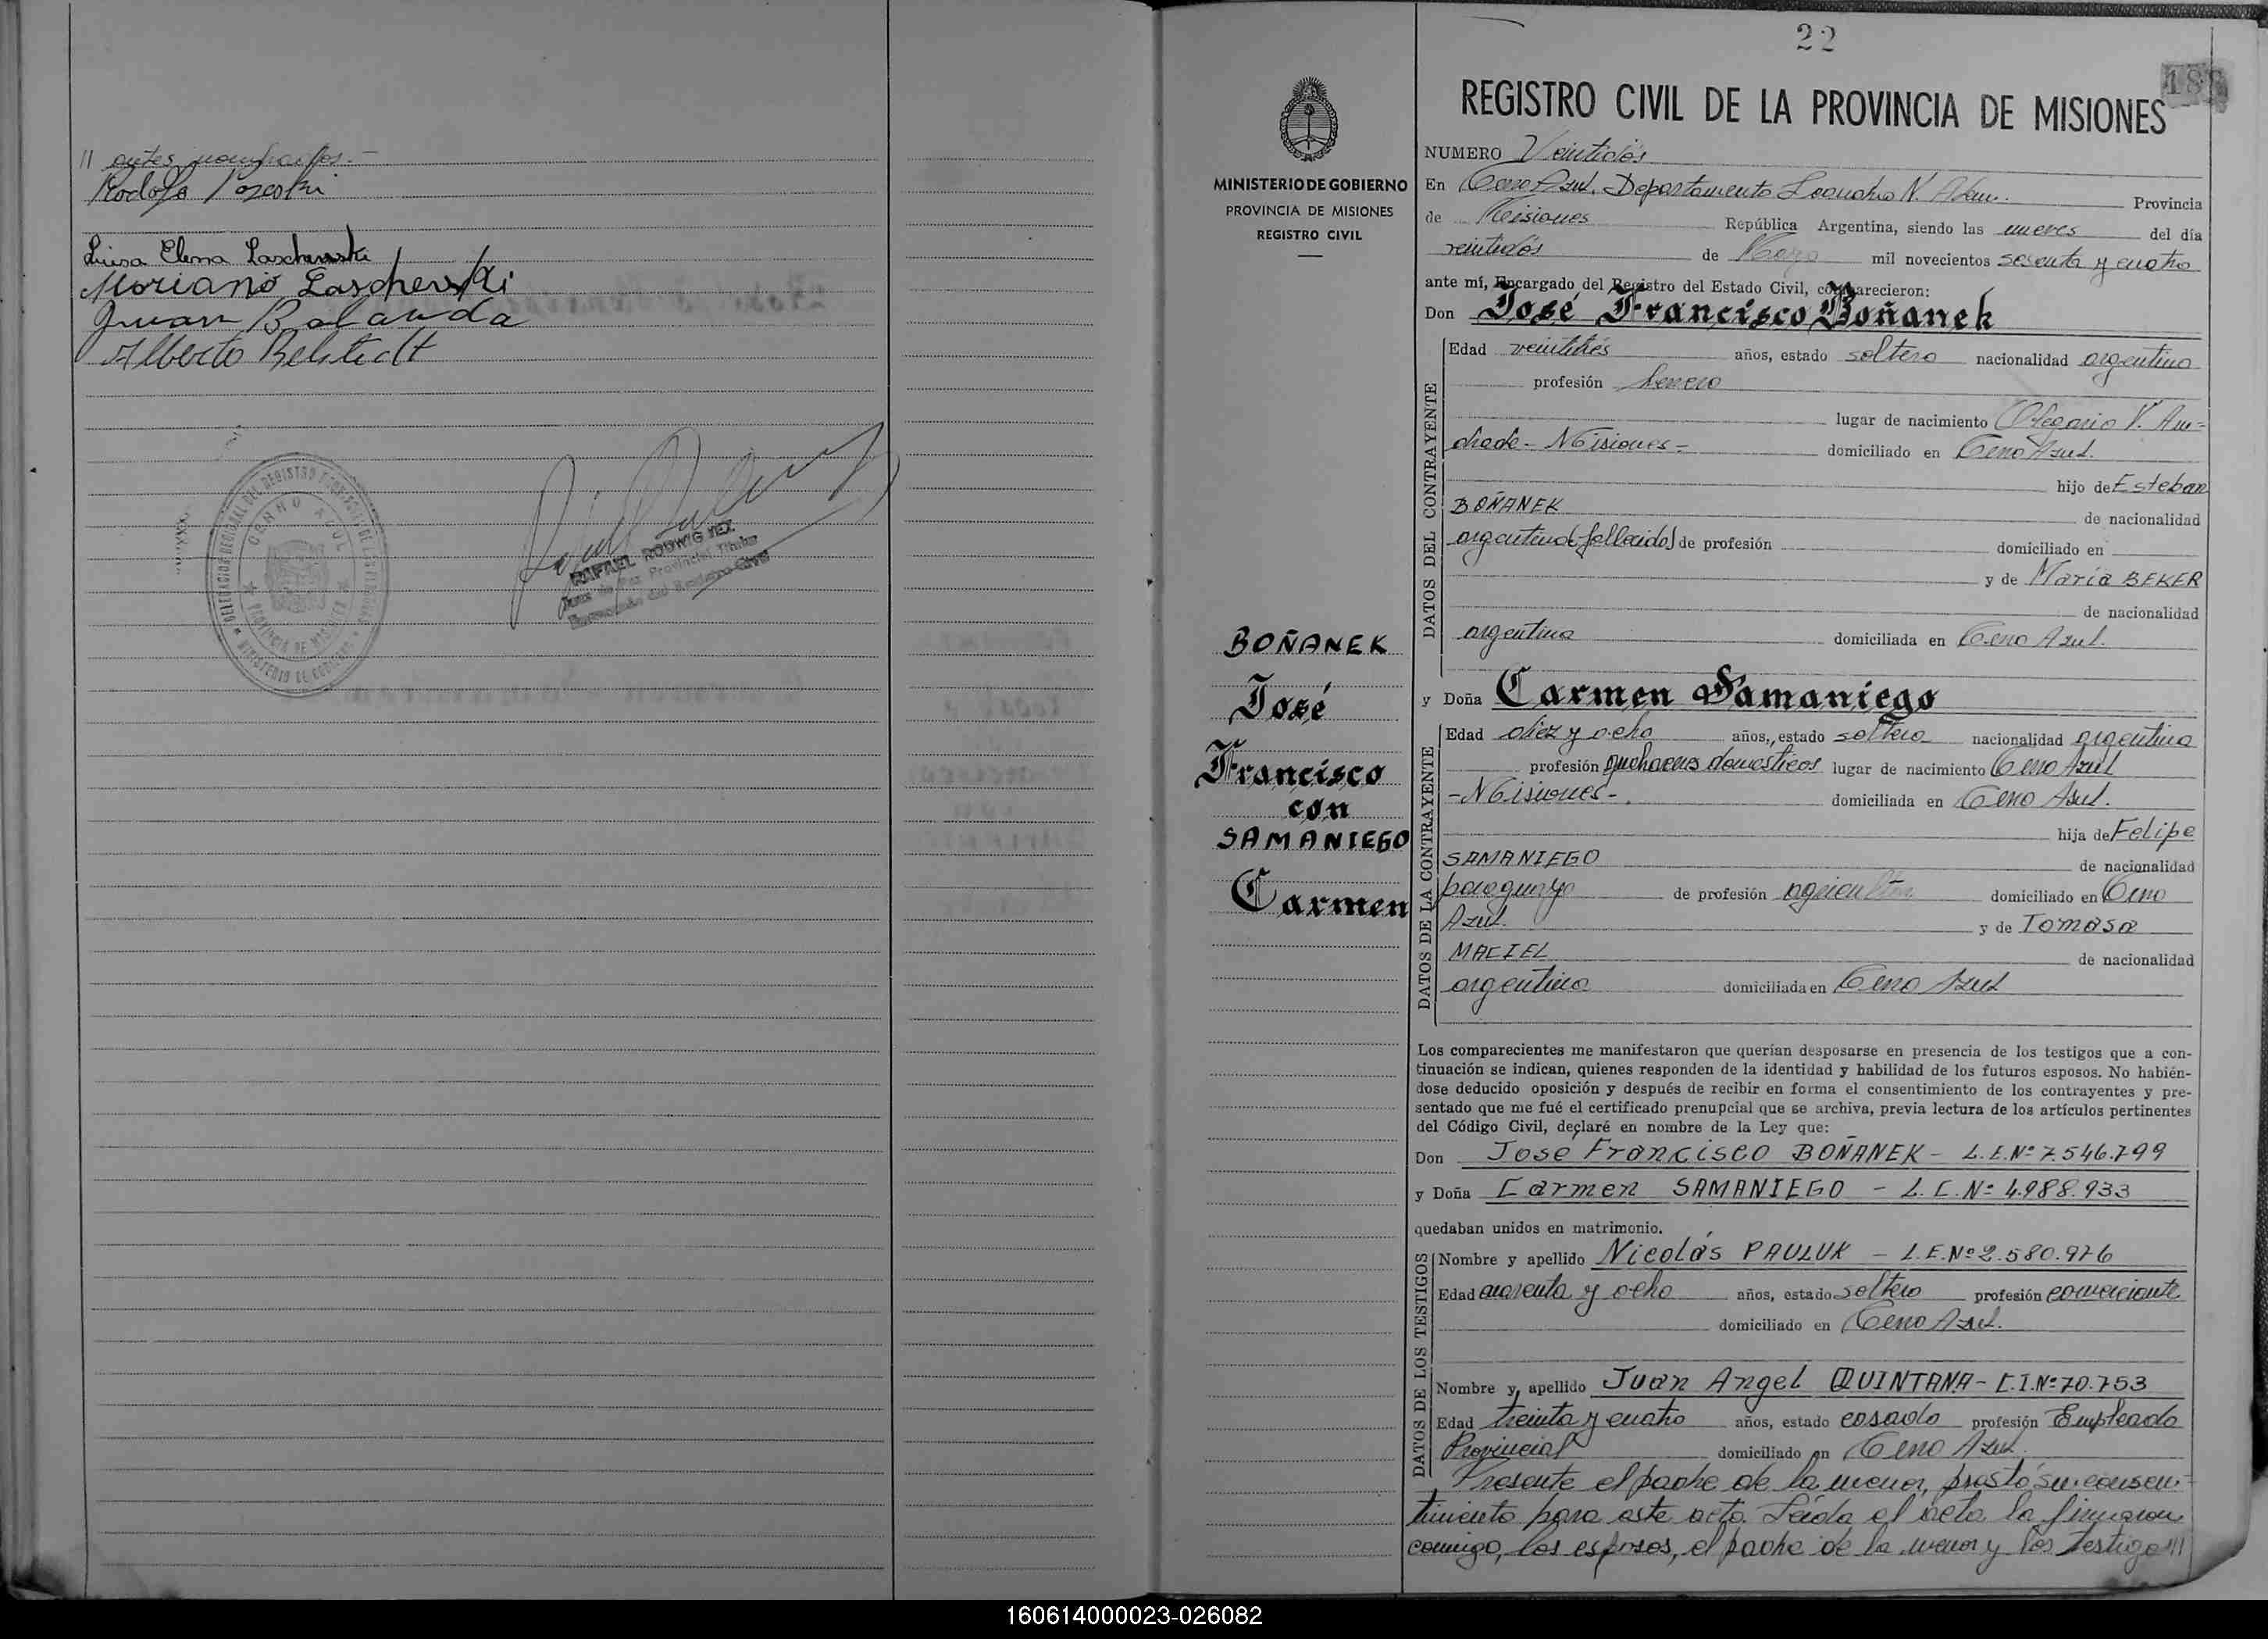 // antes nombrados.-
Rodolfo
Luisa Elena Lascheveski
Mariano Lascheveski
Juan Balanda
Alberto Belstedt
DELEGACION REGIONAL DEL REGISTRO PROVINCIAL DE LAS PERSONAS
CERRO AZUL
PROVINCIA DE MISIONES
MINISTERIO DE GOBIERNO
RAFAEL RODWIG YEZ
Juez de Paz Provincial Titular
Encargado del Registro Civil
22
188
MINISTERIO DE GOBIERNO
PROVINCIA DE MISIONES
REGISTRO CIVIL
BOÑANEK
José
Francisco
con
SAMANIEGO
Carmen
REGISTRO CIVIL DE LA PROVINCIA DE MISIONES
NUMERO Veintidós
En Cerro Azul, Departamento Leandro N. Alem. Provincia
de Misiones República Argentina, siendo las nueves del día
veintidós de mil novecientos sesenta y cuatro
ante mí, Encargado del Registro del Estado Civil, comparecieron:
Don José Francisco Boñanek
DATOS DEL CONTRAYENTE
Edad veintitrés años, estado soltero nacionalidad argentino
profesión
lugar de nacimiento Olegario V. An=
drade - Misiones = domiciliado en Cerro Azul.
hijo de Esteban
BOÑANEK de nacionalidad
argentino (fallecido) de profesión domiciliado en
y de María BEKER
de nacionalidad
argentina domiciliada en Cerro Azul.
y Doña Carmen Samaniego
DATOS DE LA CONTRAYENTE
Edad diez y ocho años, estado soltera nacionalidad argentina
profesión quehaceres domesticos lugar de nacimiento Cerro Azul
-Misiones-. domiciliada en Cerro Azul.
hija de Felipe
SAMANIEGO de nacionalidad
paraguayo de profesión agricultor domiciliado en Cerro
Azul. y de Tomasa
MACIEL de nacionalidad
argentina domiciliada en Cerro Azul
Los comparecientes me manifestaron que querían desposarse en presencia de los testigos que a con-
tinuación se indican, quienes responden de la identidad y habilidad de los futuros esposos. No habién-
dose deducido oposición y después de recibir en forma el consentimiento de los contrayentes y pre-
sentado que me fué el certificado prenupcial que se archiva, previa lectura de los artículos pertinentes
del Código Civil, declaré en nombre de la Ley que:
Don Jose Francisco BOÑANEK - L.E.Nº 7.546.799
y Doña Carmen SAMANIEGO - L.C.Nº 4.988.933
quedaban unidos en matrimonio.
DATOS DE LOS TESTIGOS
Nombre y apellido Nicolás PAULUK - L.E.Nº 2.580.976
Edad cuarenta y ocho años, estado soltero profesión comerciante
domiciliado en Cerro Azul.
Nombre y apellido Juan Angel QUINTANA - C.I.Nº 70.753
Edad treinta y cuatro años, estado casado profesión Empleado
Provincial domiciliado en Cerro Azul.
Presente el padre de la menor, prestó su consen-
timiento para este acto. Leída el acta la firmaron
conmigo, los esposos, el padre de la menor y los testigo///
160614000023-026082